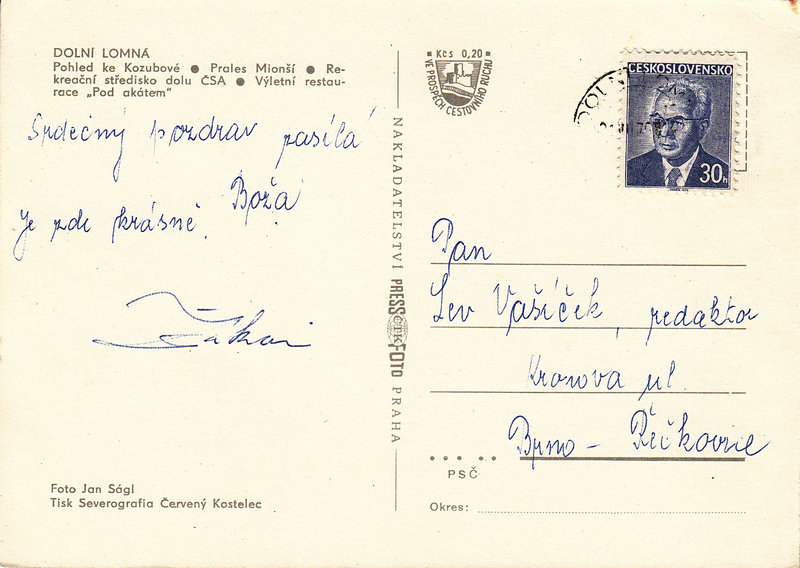 DOLNÍ LOMNÁ
Pohled ke Kozubové ● Prales Mionší ● Re-
kreační středisko dolu ČSA ● Výletní restau-
race „Pod akátem"
Srdečný pozdrav zasílá
Boža
Je zde krásně.
Foto Jan Ságl
Tisk Severografia Červený Kostelec
NAKLADATELSTVÍ PRESSFOTO PRAHA
ČTK
Kčs 0,20
VE PROSPĚCH CESTOVNÍHO RUCHU
ČESKOSLOVENSKO
30h
Pan
Lev Vašíček, redaktor
Kronova ul.
Brno – Řečkovice
PSČ
Okres: